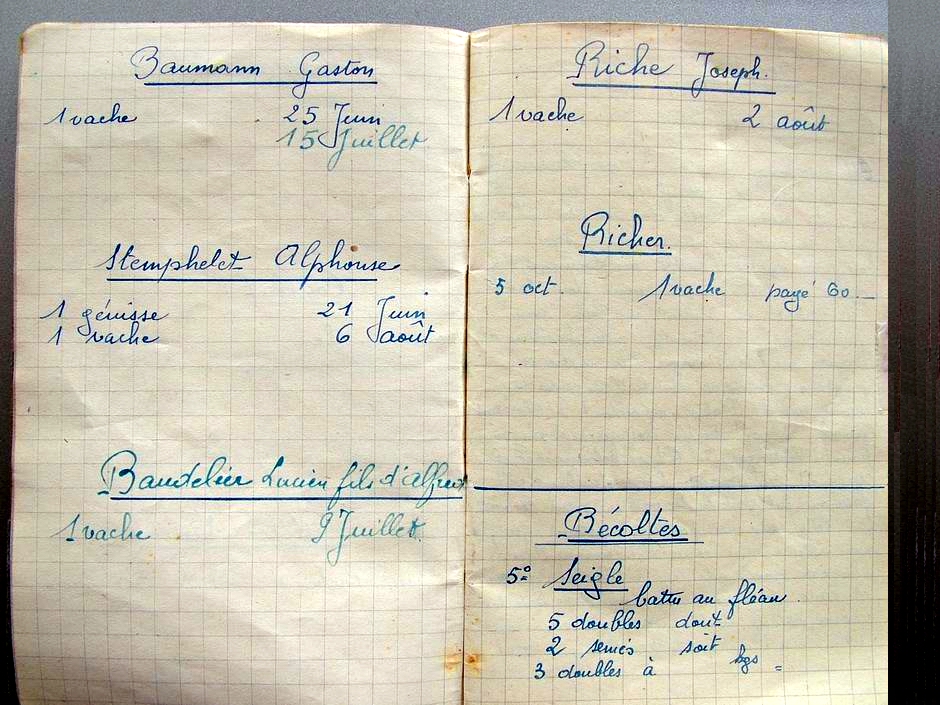 Baumann Gaston
1 vache 25 Juin
15 Juillet
Stemphelet Alphonse
1 génisse 21 Juin
1 vache 6 août
Baudelier Lucien fils d'alfred
1 vache 9 Juillet.
Riche Joseph.
1 vache 2 août
Richer.
5 oct. 1 vache payé 60._
Récoltes
5° Seigle
battu au fléau.
5 doubles dont
2 semés soit
3 doubles à kgs =